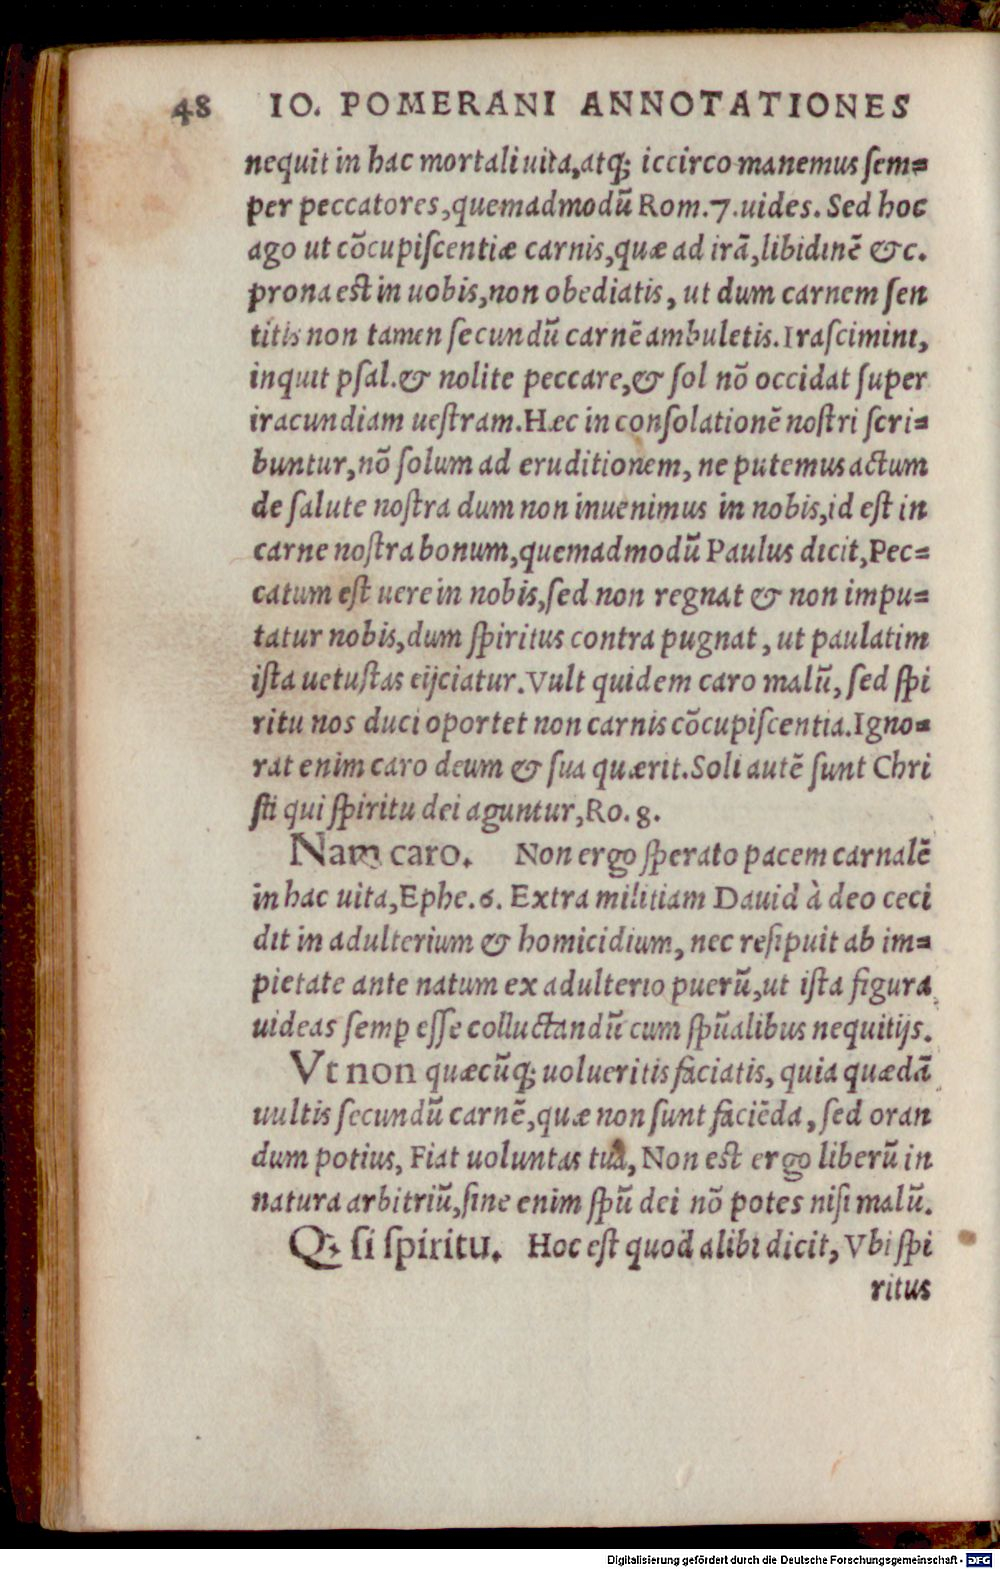 48 IO. POMERANI ANNOTATIONES
nequit in hac mortali uita, atq; iccirco manemus ſem=
per peccatores, quemadmodũ Rom. 7. uides. Sed hoc
ago ut cõcupiſcentiæ carnis, quæ ad irã, libidinẽ &c.
prona est in uobis, non obediatis, ut dum carnem ſen
titis non tamen ſecundũ carnẽ ambuletis. Iraſcimini,
inquit pſal. & nolite peccare, & ſol nõ occidat ſuper
iracundiam ueſtram. Hæc in conſolationẽ noſtri ſcri=
buntur, nõ ſolum ad eruditionem, ne putemus actum
de ſalute noſtra dum non inuenimus in nobis, id eſt in
carne noſtra bonum, quemadmodũ Paulus dicit, Pec=
catum eſt uere in nobis, ſed non regnat & non impu=
tatur nobis, dum ſpiritus contra pugnat, ut paulatim
iſta uetuſtas eijciatur. Vult quidem caro malũ, ſed ſpi
ritu nos duci oportet non carnis cõcupiſcentia. Igno=
rat enim caro deum & ſua quærit. Soli autẽ ſunt Chri
ſti qui ſpiritu dei aguntur, Ro. 8.
Nam caro. Non ergo ſperato pacem carnalẽ
in hac uita, Ephe. 6. Extra militiam Dauid à deo ceci
dit in adulterium & homicidium, nec reſipuit ab im=
pietate ante natum ex adulterio puerũ, ut iſta figura
uideas ſemꝑ eſſe colluctandũ cum ſpũalibus nequitijs.
Vt non quæcũq; uolueritis faciatis, quia quædã
uultis ſecundũ carnẽ, quæ non ſunt faciẽda, ſed oran
dum potius, Fiat uoluntas tua, Non est ergo liberũ in
natura arbitriũ, ſine enim ſpũ dei nõ potes niſi malũ.
Qꝫ ſi ſpiritu. Hoc eſt quod alibi dicit, Vbi ſpi
ritus
Digitalisierung gefördert durch die Deutsche Forschungsgemeinschaft - DFG